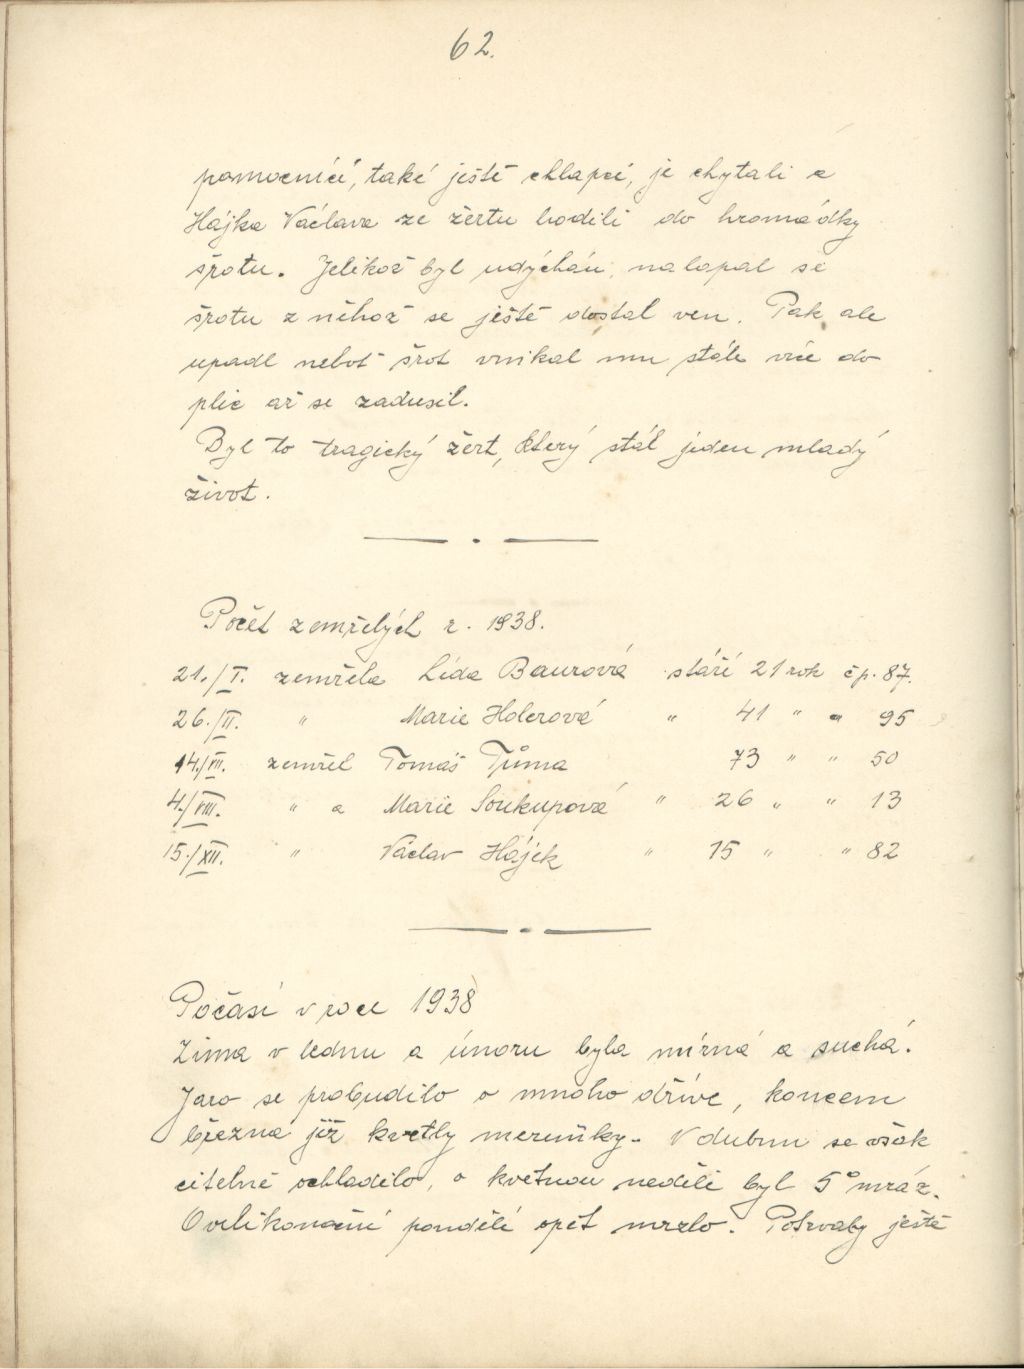 62.
pomocníci, také ještě chlapci, je chytali a
Hájka Václava ze žertu hodili do hromádky
šrotu. Jelikož byl udýchán, nalapal se
šrotu z něhož se ještě dostal ven. Pak ale
upadl neboť šrot vnikal mu stále více do
plic až se zadusil.
Byl to tragický žert, který stál jeden mladý
život.
Počet zemřelých r. 1938.
21./I. zemřela Lída Baurová stáří 21 rok čp. 87.
26./II. " Marie Holerová " 41 " " 95
14./VII. zemřel Tomáš Tůma 73 " " 50
4./VIII. " a Marie Soukupová " 26 " " 13
15./XII. " Václav Hájek " 15 " " 82
Počasí v roce 1938
Zima v lednu a únoru byla mírná a suchá.
Jaro se probudilo o mnoho dříve, koncem
března již kvetly meruňky. V dubnu se však
citelně ochladilo, o květnou neděli byl 5° mráz.
O velikonoční pondělí opět mrzlo. Potrvaly ještě